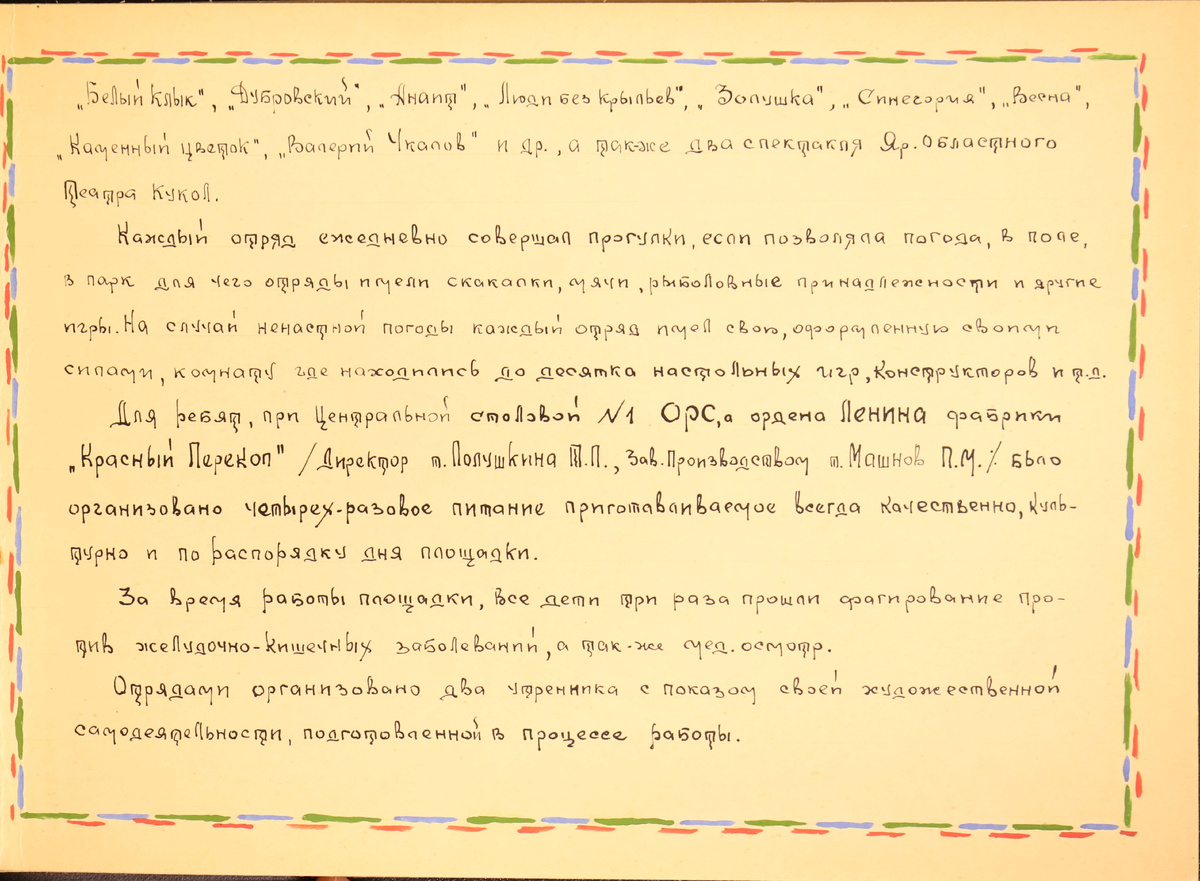 „Белый клык", „Дубровский", „Анаит", „Люди без крыльев", „Золушка", „Синегория", „Весна",
„Каменный цветок", „Валерий Чкалов" и др., а так-же два спектакля Яр. областного
театра кукол.
Каждый отряд ежедневно совершал прогулки, если позволяла погода, в поле,
в парк для чего отряды имели скакалки, мячи, рыболовные принадлежности и другие
игры. На случай ненастной погоды каждый отряд имел свою, оформленную своими
силами, комнату где находились до десятка настольных игр, конструкторов и т.д.
Для ребят, при Центральной столовой №1 ОРС,а ордена Ленина фабрики
„Красный Перекоп" /Директор т. Полушкина Т.П., Зав. Производством т. Машнов П.М./. было
организовано четырех-разовое питание приготавливаемое всегда качественно, куль-
турно и по распорядку дня площадки.
За время работы площадки, все дети три раза прошли фагирование про-
тив желудочно-кишечных заболеваний, а так-же мед. осмотр.
Отрядами организовано два утренника с показом своей художественной
самодеятельности, подготовленной в процессе работы.